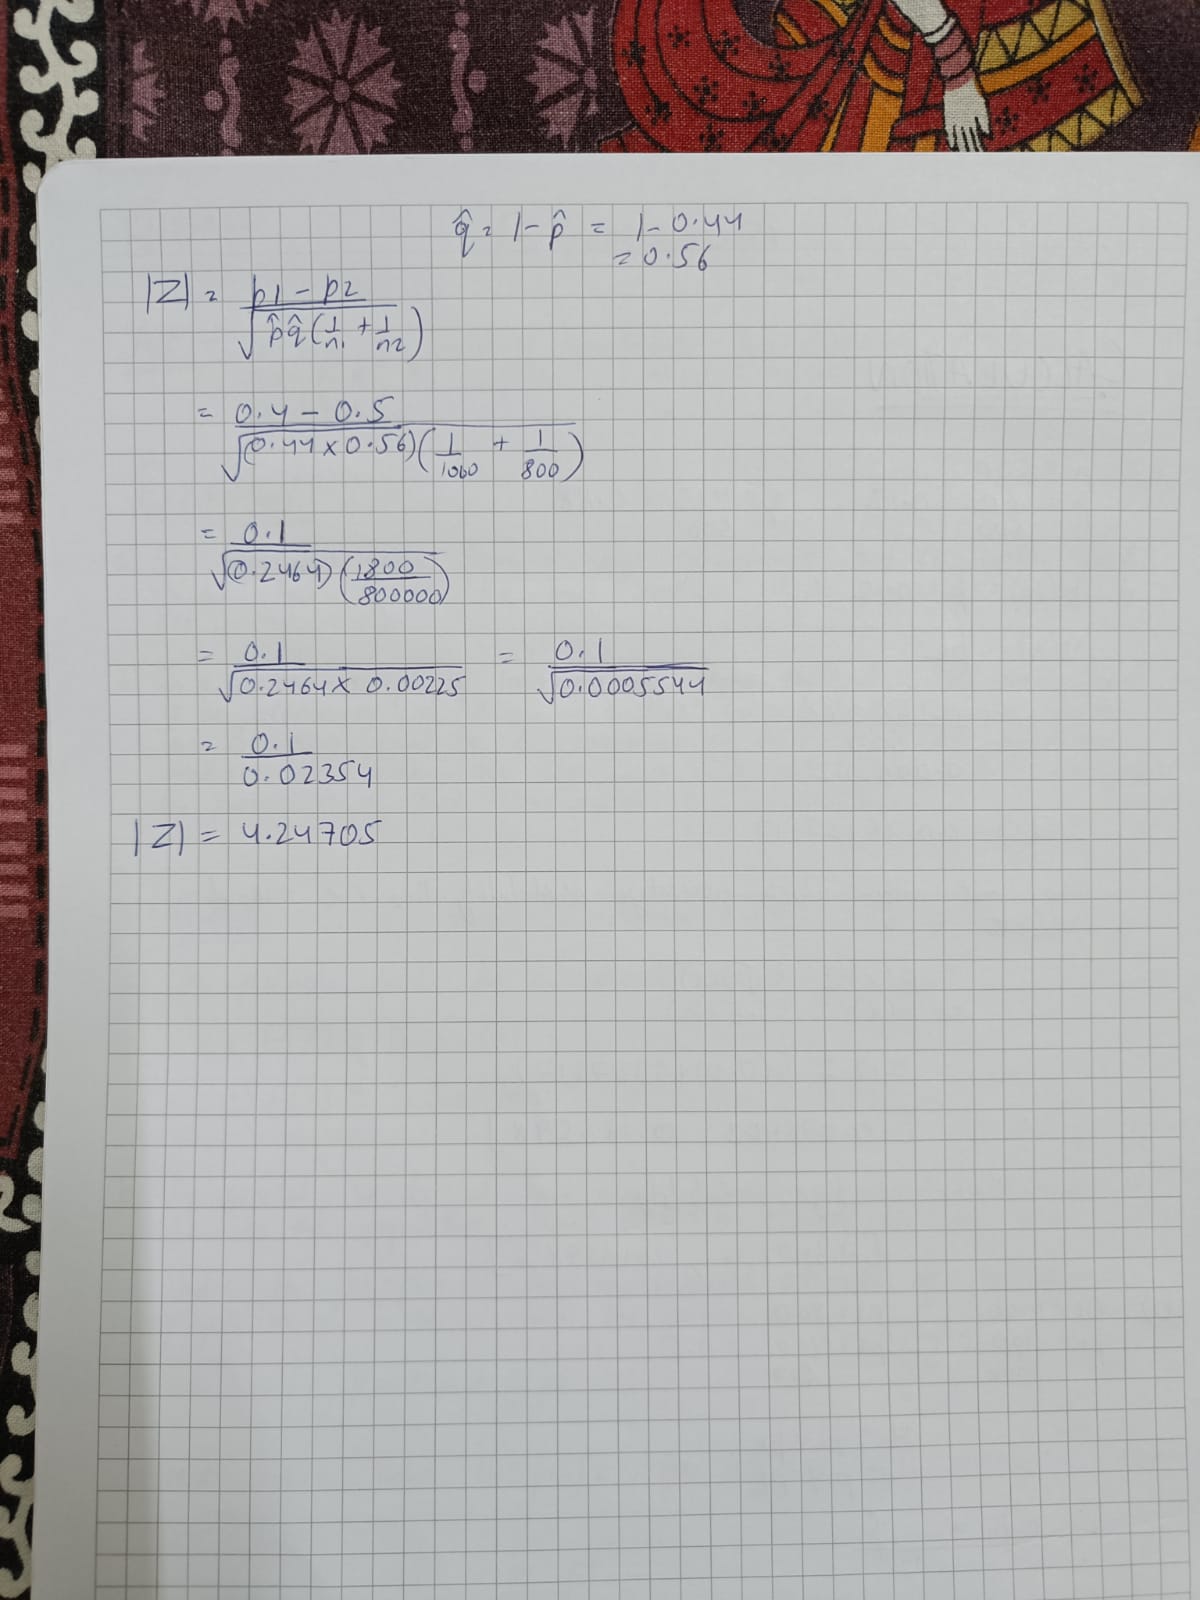 q̂ = 1 - p̂ = 1 - 0.44
= 0.56
|Z| = p1 - p2
√p̂q̂(1/n1 + 1/n2)
= 0.4 - 0.5
√(0.44 x 0.56)(1/1000 + 1/800)
= 0.1
√(0.2464)(1800/800000)
= 0.1 = 0.1
√0.2464 x 0.00225 √0.0005544
= 0.1
0.02354
|Z| = 4.24705